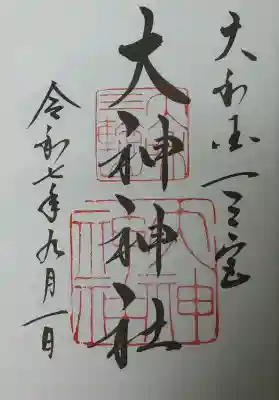 大和国一之宮
大神神社
令和七年九月一日
大神神社